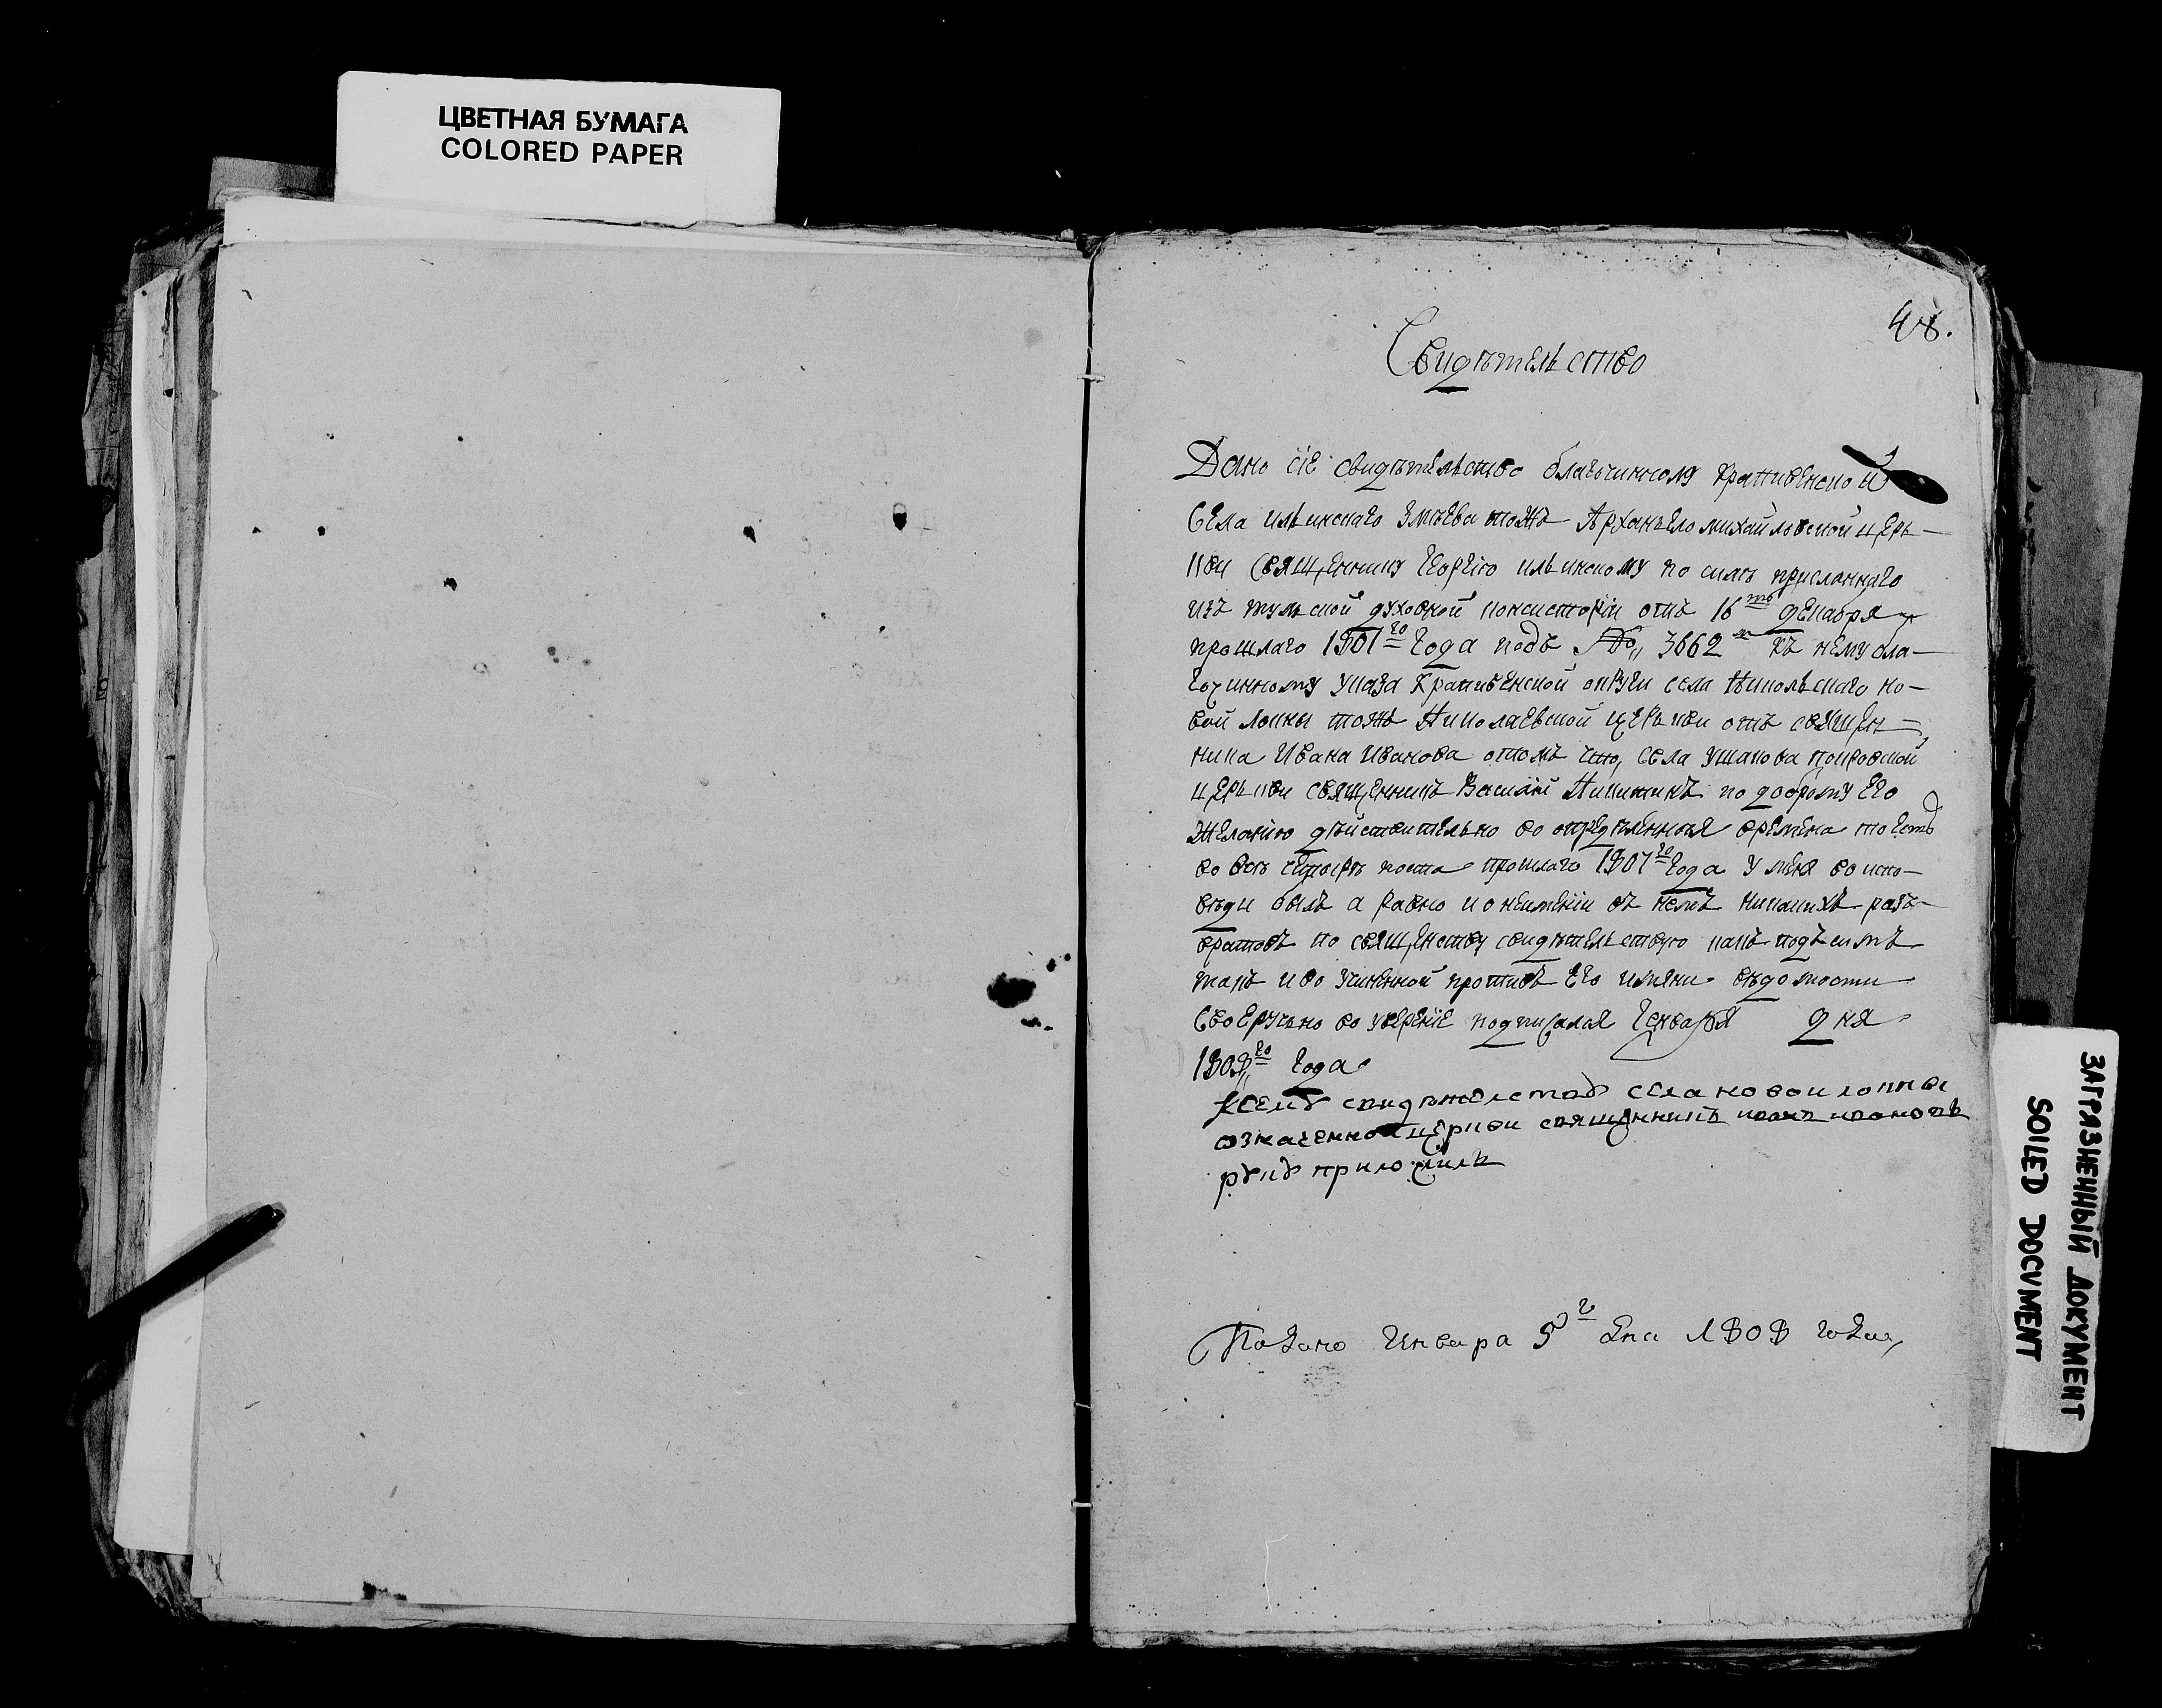 ЦВЕТНАЯ БУМАГА
COLORED PAPER
48.
Свидѣтельство
Дано сіе свидѣтельство благочинному Крапивенской
села ильинскаго Змѣева тожъ Архангело михайловской церь-
кви священнику Георгію ильинскому по силѣ присланнаго
изъ тульской духовной консисторіи отъ 16го декабря
прошлаго 1807го года подъ № 3662 къ нему бла-
гочинному указа Крапивенской округи села Никольскаго но-
вой локны тожъ Николаевской церькви отъ священ-
ника Ивана Иванова отомъ что, села Ушакова покровской
церькви священникъ Василій Никитинъ по доброму его
желанію дѣйствительно во опредѣленныя времена то есть
во всѣ четыре поста прошлаго 1807го года у меня во испо-
вѣди былъ а равно и о неимѣніи въ немъ никакихъ раз-
вратовъ по священству свидѣтельствую какъ подъ симъ
такъ и во учиненной противъ его имяни вѣдомости
своеручьно во увѣреніе подписался Генваря дня
1808го года
ксему свидѣтелству села новои локны
означенной церкви священникъ иванъ ивановъ
руку приложилъ
Подано Генваря 5го дня 1808 года,
ЗАГРЯЗНЕННЫЙ ДОКУМЕНТ
SOILED DOCUMENT